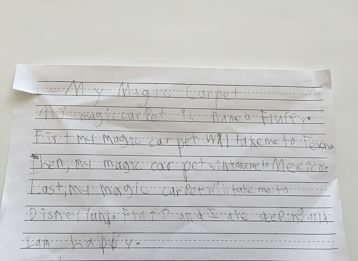 My Magic Carpet
My magic carpet is name a Fluffy.
Firt my magic carpet will take me to Texas.
Then, my magic car pet will take me to Mexico.
Last, my magic carpet will take me to
and I are and
I am happy.